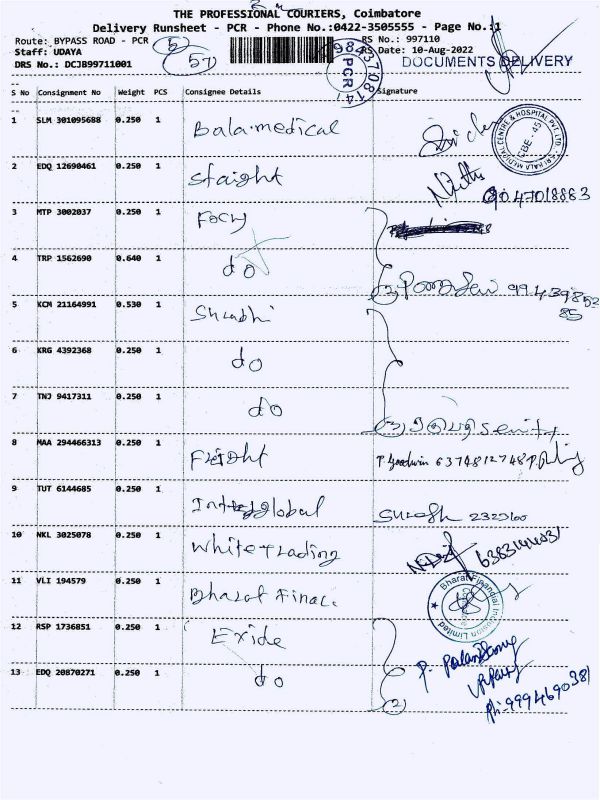 THE PROFESSIONAL COURIERS, Coimbatore
Delivery Runsheet - PCR - Phone No.:0422-3505555 - Page No.:1
Route: BYPASS ROAD - PCR RS No.: 997110
Staff: UDAYA RS Date: 10-Aug-2022
DRS No.: DCJB99711001 DOCUMENTS DELIVERY
5
57
PCR
S No Consignment No Weight PCS Consignee Details Signature
1 SLM 301095688 0.250 1 Bala medical
2 EDQ 12690461 0.250 1 Staight 9047018883
3 MTP 3002037 0.250 1 Focus
4 TRP 1562690 0.640 1 do
5 KCM 21164991 0.530 1 Surabhi
6 KRG 4392368 0.250 1 do
7 TNJ 9417311 0.250 1 do
8 MAA 294466313 0.250 1 Freight T. Goodwin 6374812748
9 TUT 6144685 0.250 1 Interglobal Suresh
10 NKL 3025078 0.250 1 White trading
11 VLI 194579 0.250 1 Bharat Finac.
Bharat Financial Inclusion Limited
12 RSP 1736851 0.250 1 Exide
13 EDQ 20870271 0.250 1 do
2